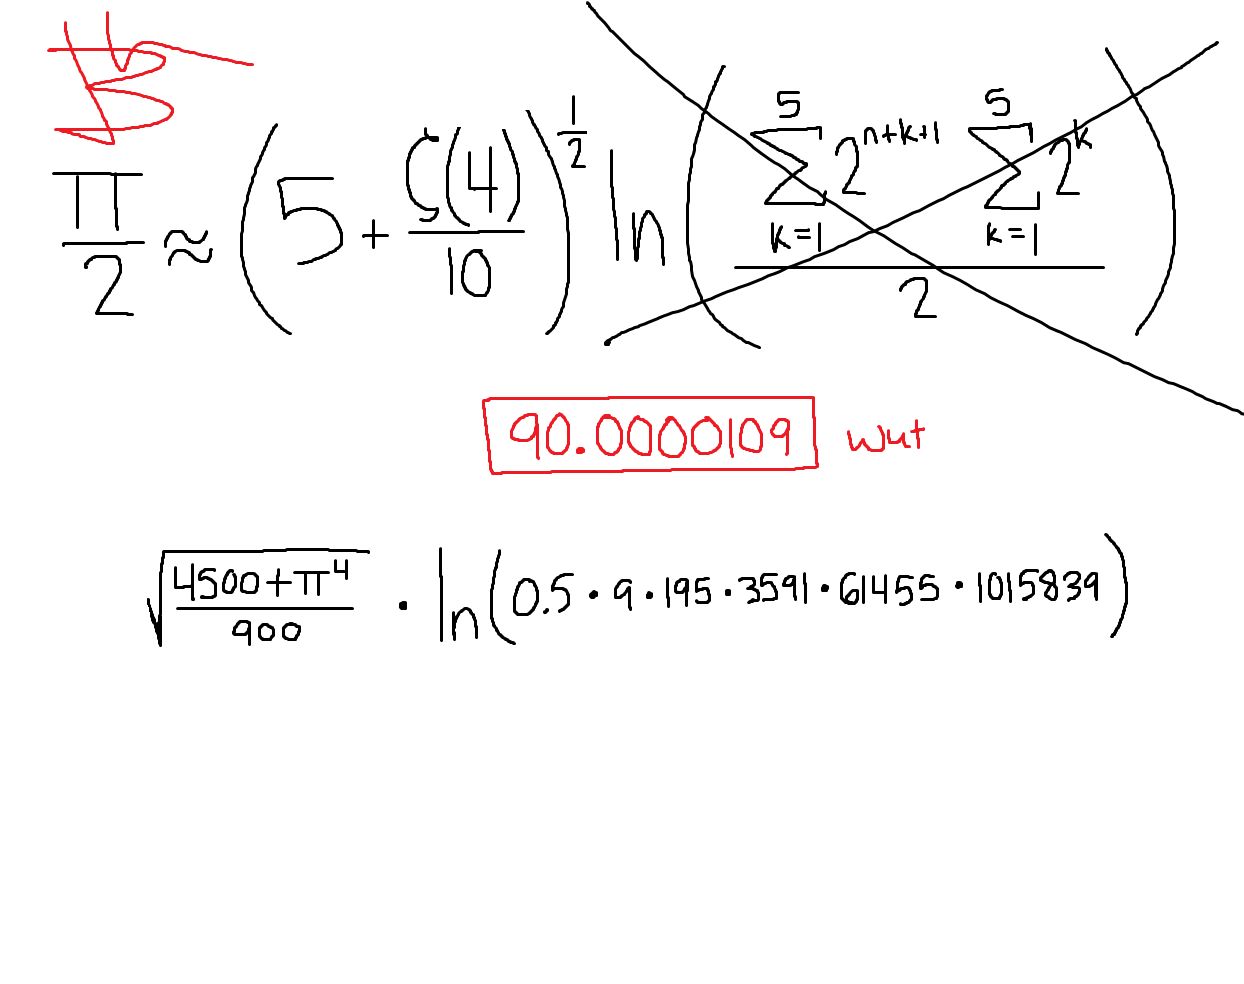 π/2 ≈ (5 + ζ(4)/10)^(1/2) ln( (∑_{k=1}^{5} 2^{n+k+1} ∑_{k=1}^{5} 2^k) / 2 )
90.0000109 wut
√((4500+π^4)/900) · ln(0.5 · 9 · 195 · 3591 · 61455 · 1015839)